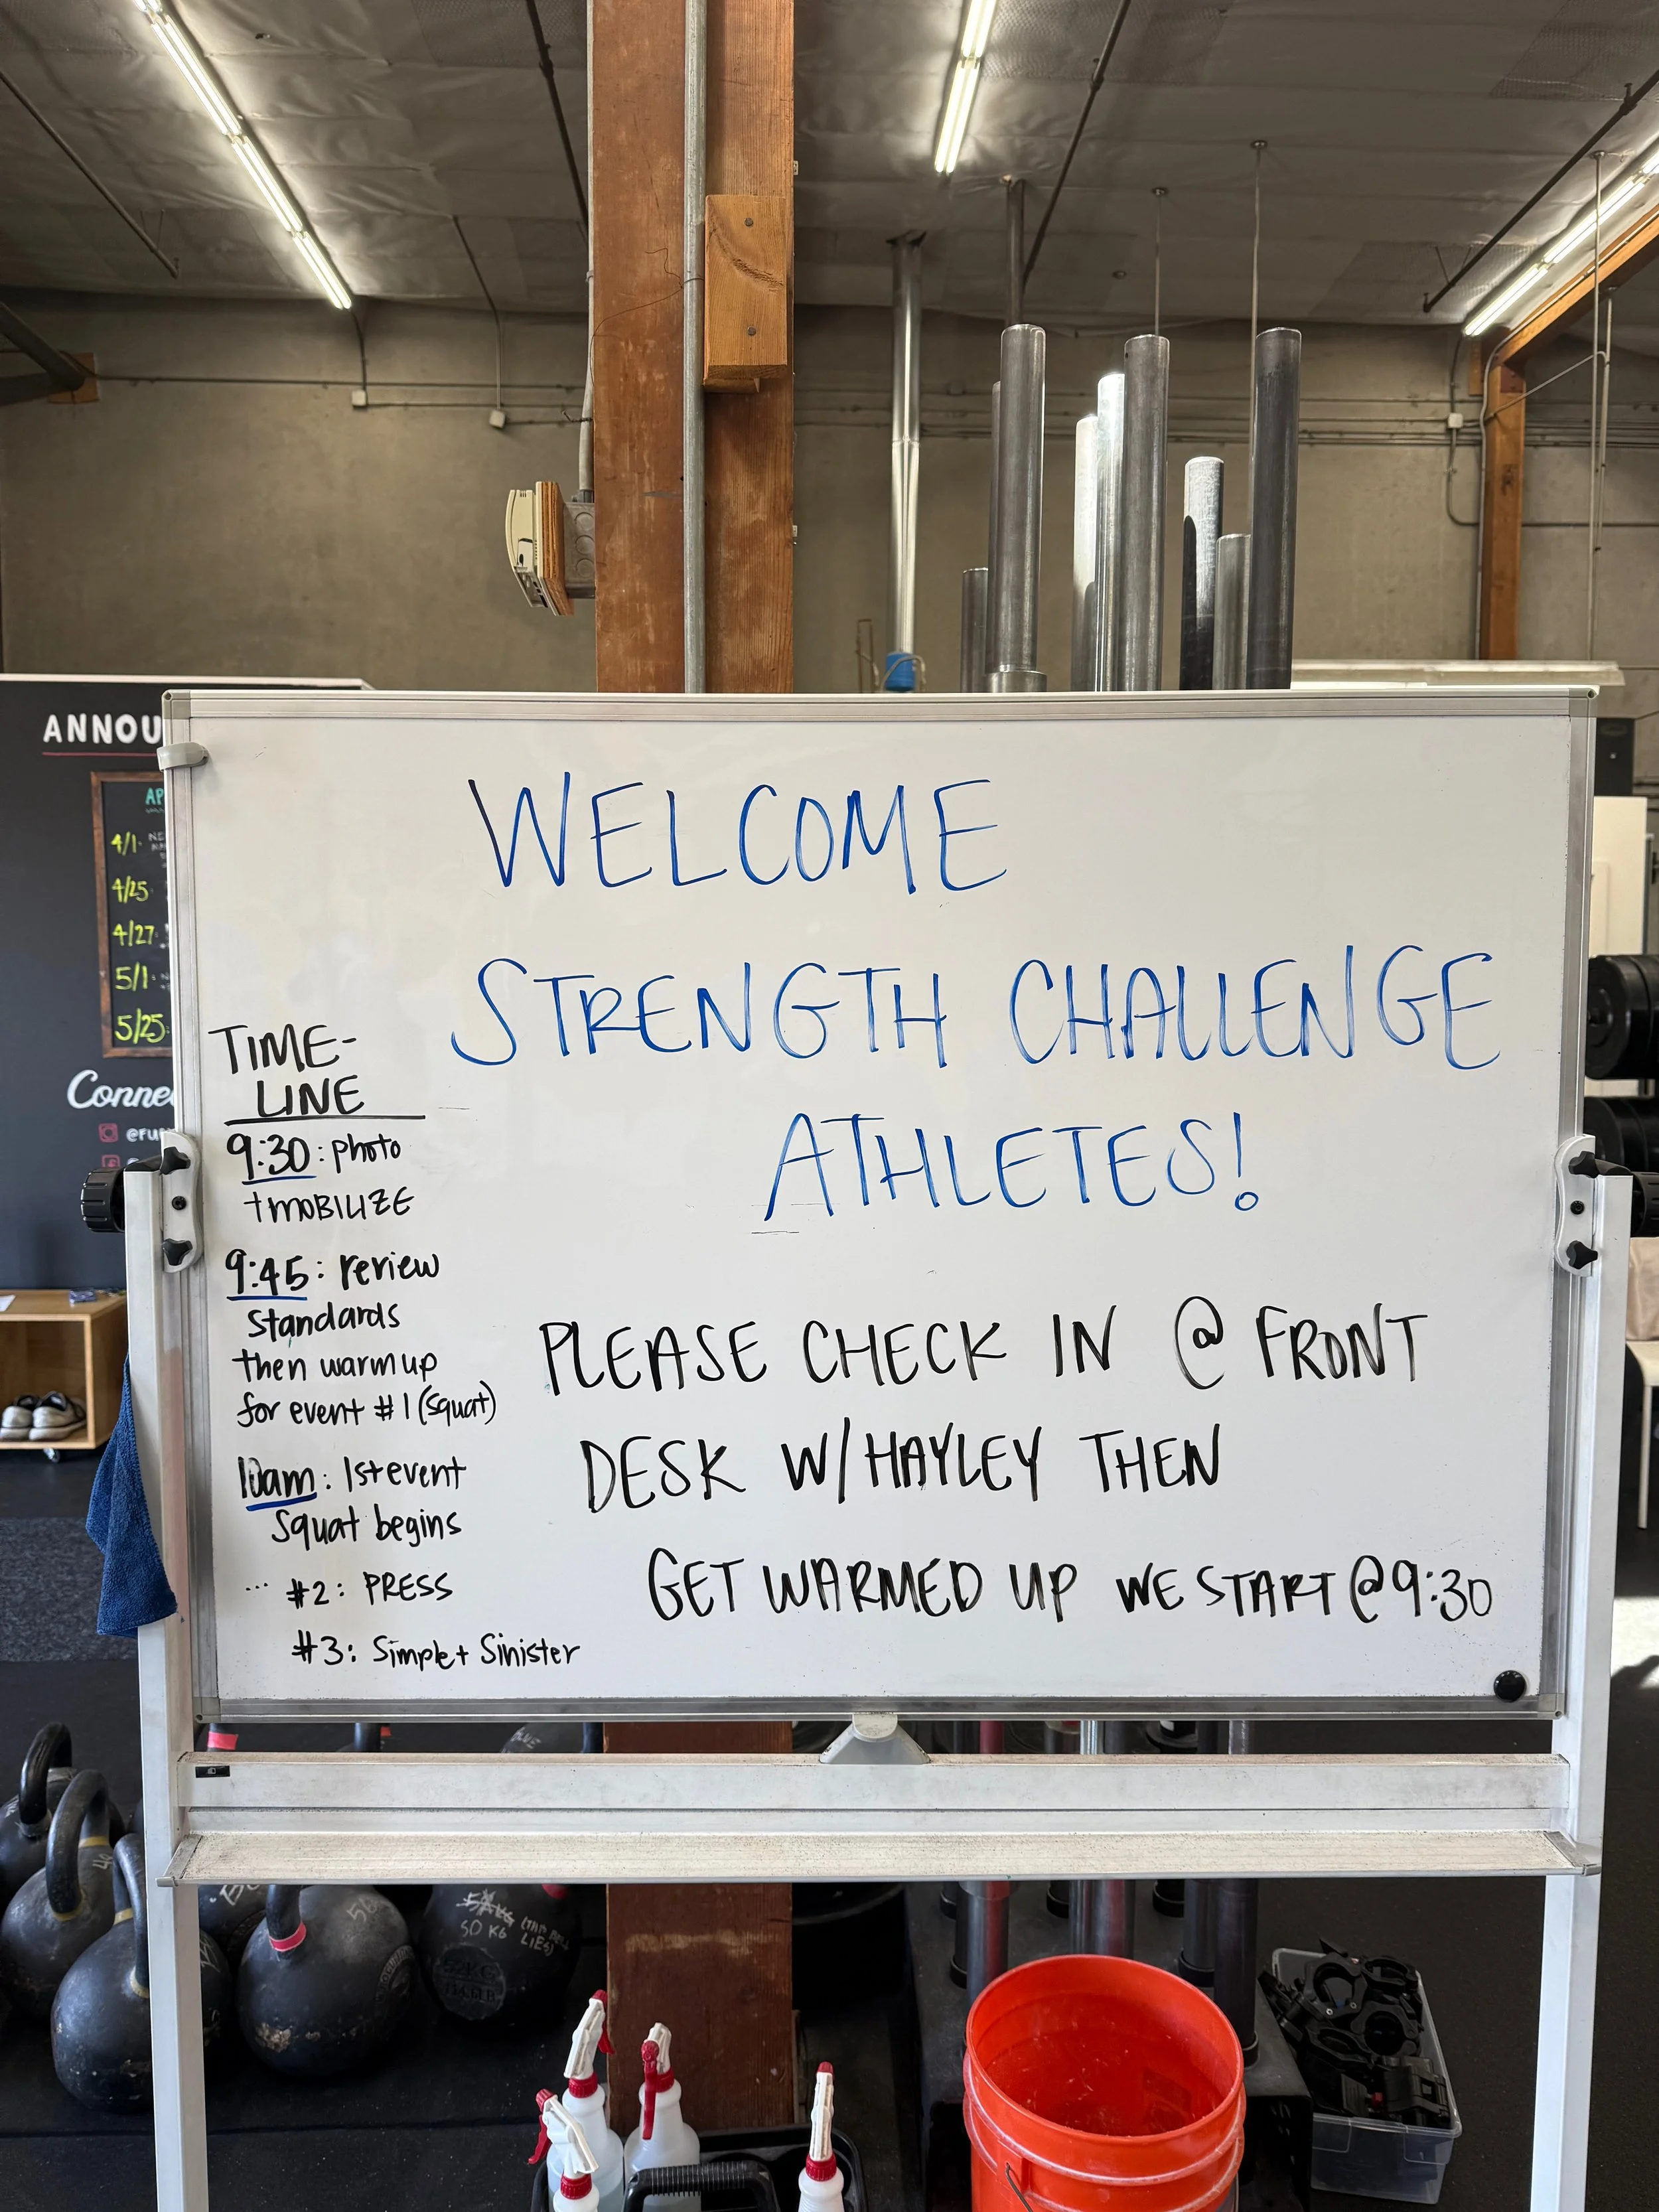 ANNOU
AP
4/1
4/25
4/27
5/1
5/25
Conne
WELCOME
STRENGTH CHALLENGE
ATHLETES!
PLEASE CHECK IN @ FRONT
DESK W/ HAYLEY THEN
GET WARMED UP WE START @ 9:30
TIME-
LINE
9:30: photo
+ MOBILIZE
9:45: review
standards
then warm up
for event #1 (squat)
10am: 1st event
Squat begins
... #2: PRESS
#3: Simple + Sinister
50 KG
(THIS BELL
LIES)